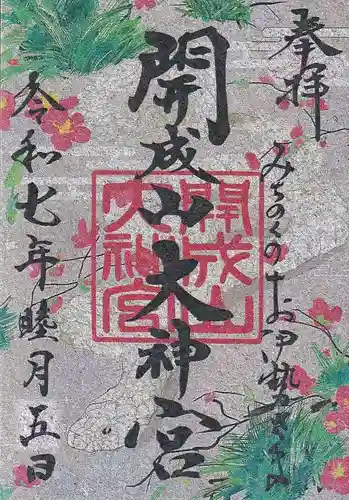 奉拝
みちのくの お伊勢
開成山大神宮
開成山
大神宮
令和七年睦月五日